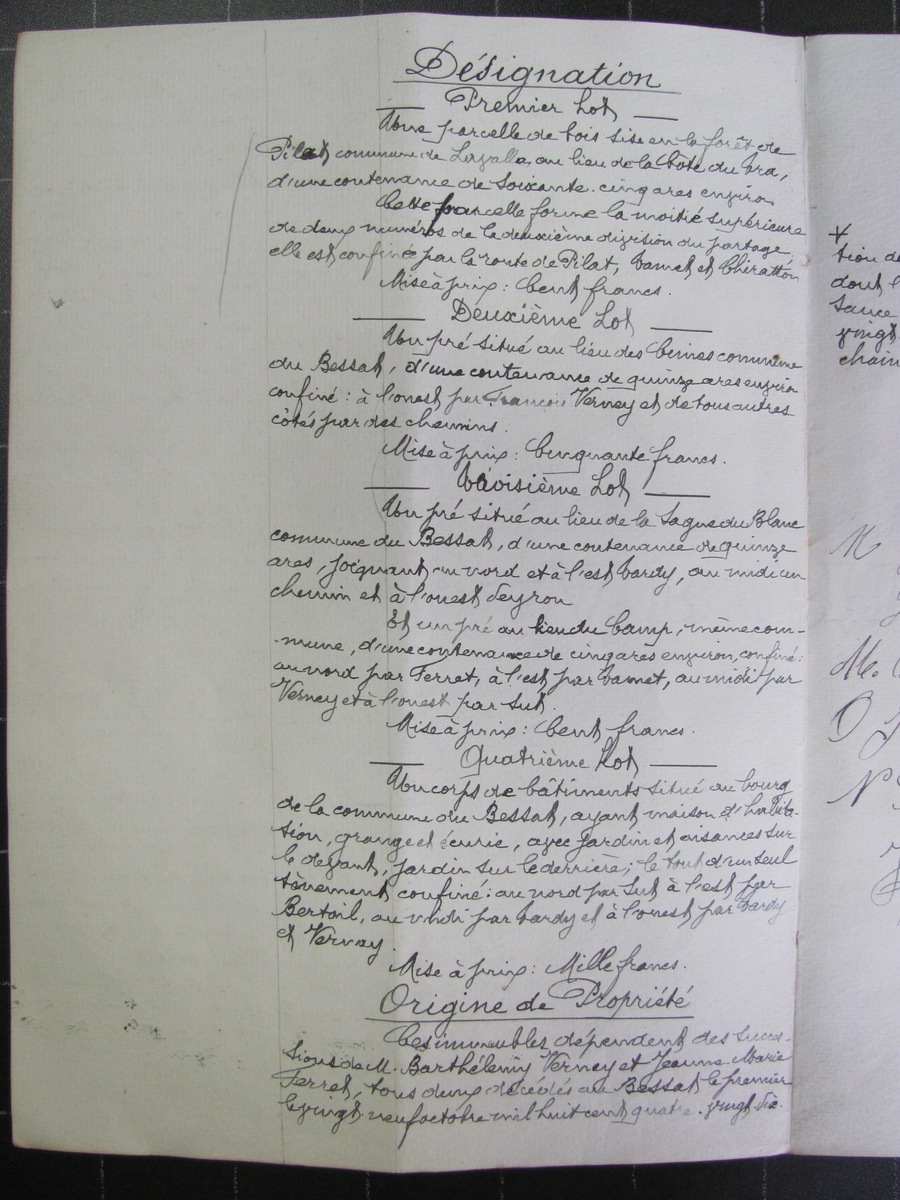 Désignation
Premier Lot
Une parcelle de bois sise en la forêt de
Pilat commune de Lavalla, au lieu de la Côte du
d'une contenance de soixante-cinq ares environ
Cette parcelle forme la moitié supérieure
de deux numéros de la deuxième division du partage
elle est confinée par la route de Pilat, et
Mise à prix : Cent francs.
Deuxième Lot
Un pré situé au lieu des commune
du Bessat, d'une contenance de quinze ares environ
confiné : à l'ouest par François Verney et de tous autres
côtés par des chemins.
Mise à prix : Cinquante francs.
Troisième Lot
Un pré situé au lieu de la Sagne du Blanc
commune du Bessat, d'une contenance de quinze
ares, joignant au nord et à l'est Tardy, au midi un
chemin et à l'ouest
Et un pré au lieu du Camp, même com-
mune, d'une contenance de cinq ares environ, confiné :
au nord par Ferret, à l'est par , au midi par
Verney et à l'ouest par Sut.
Mise à prix : Cent francs.
Quatrième Lot
Un corps de bâtiments situé au bourg
de la commune du Bessat, ayant maison d'habita-
tion, grange et écurie, avec jardin et aisances sur
le devant, jardin sur le derrière; le tout d'un seul
tènement confiné : au nord par Sut à l'est par
Bertoil, au midi par Tardy et à l'ouest par Tardy
et Verney.
Mise à prix : Mille francs.
Origine de Propriété
Ces immeubles dépendent des succes-
sions de M. Barthélemy Verney et Jeanne Marie
Ferret, tous deux décédés au Bessat le premier
le vingt neuf octobre mil huit cent quatre-vingt-dix.
tion de
dont l
sance
vingt
chain
M
M.
O
N